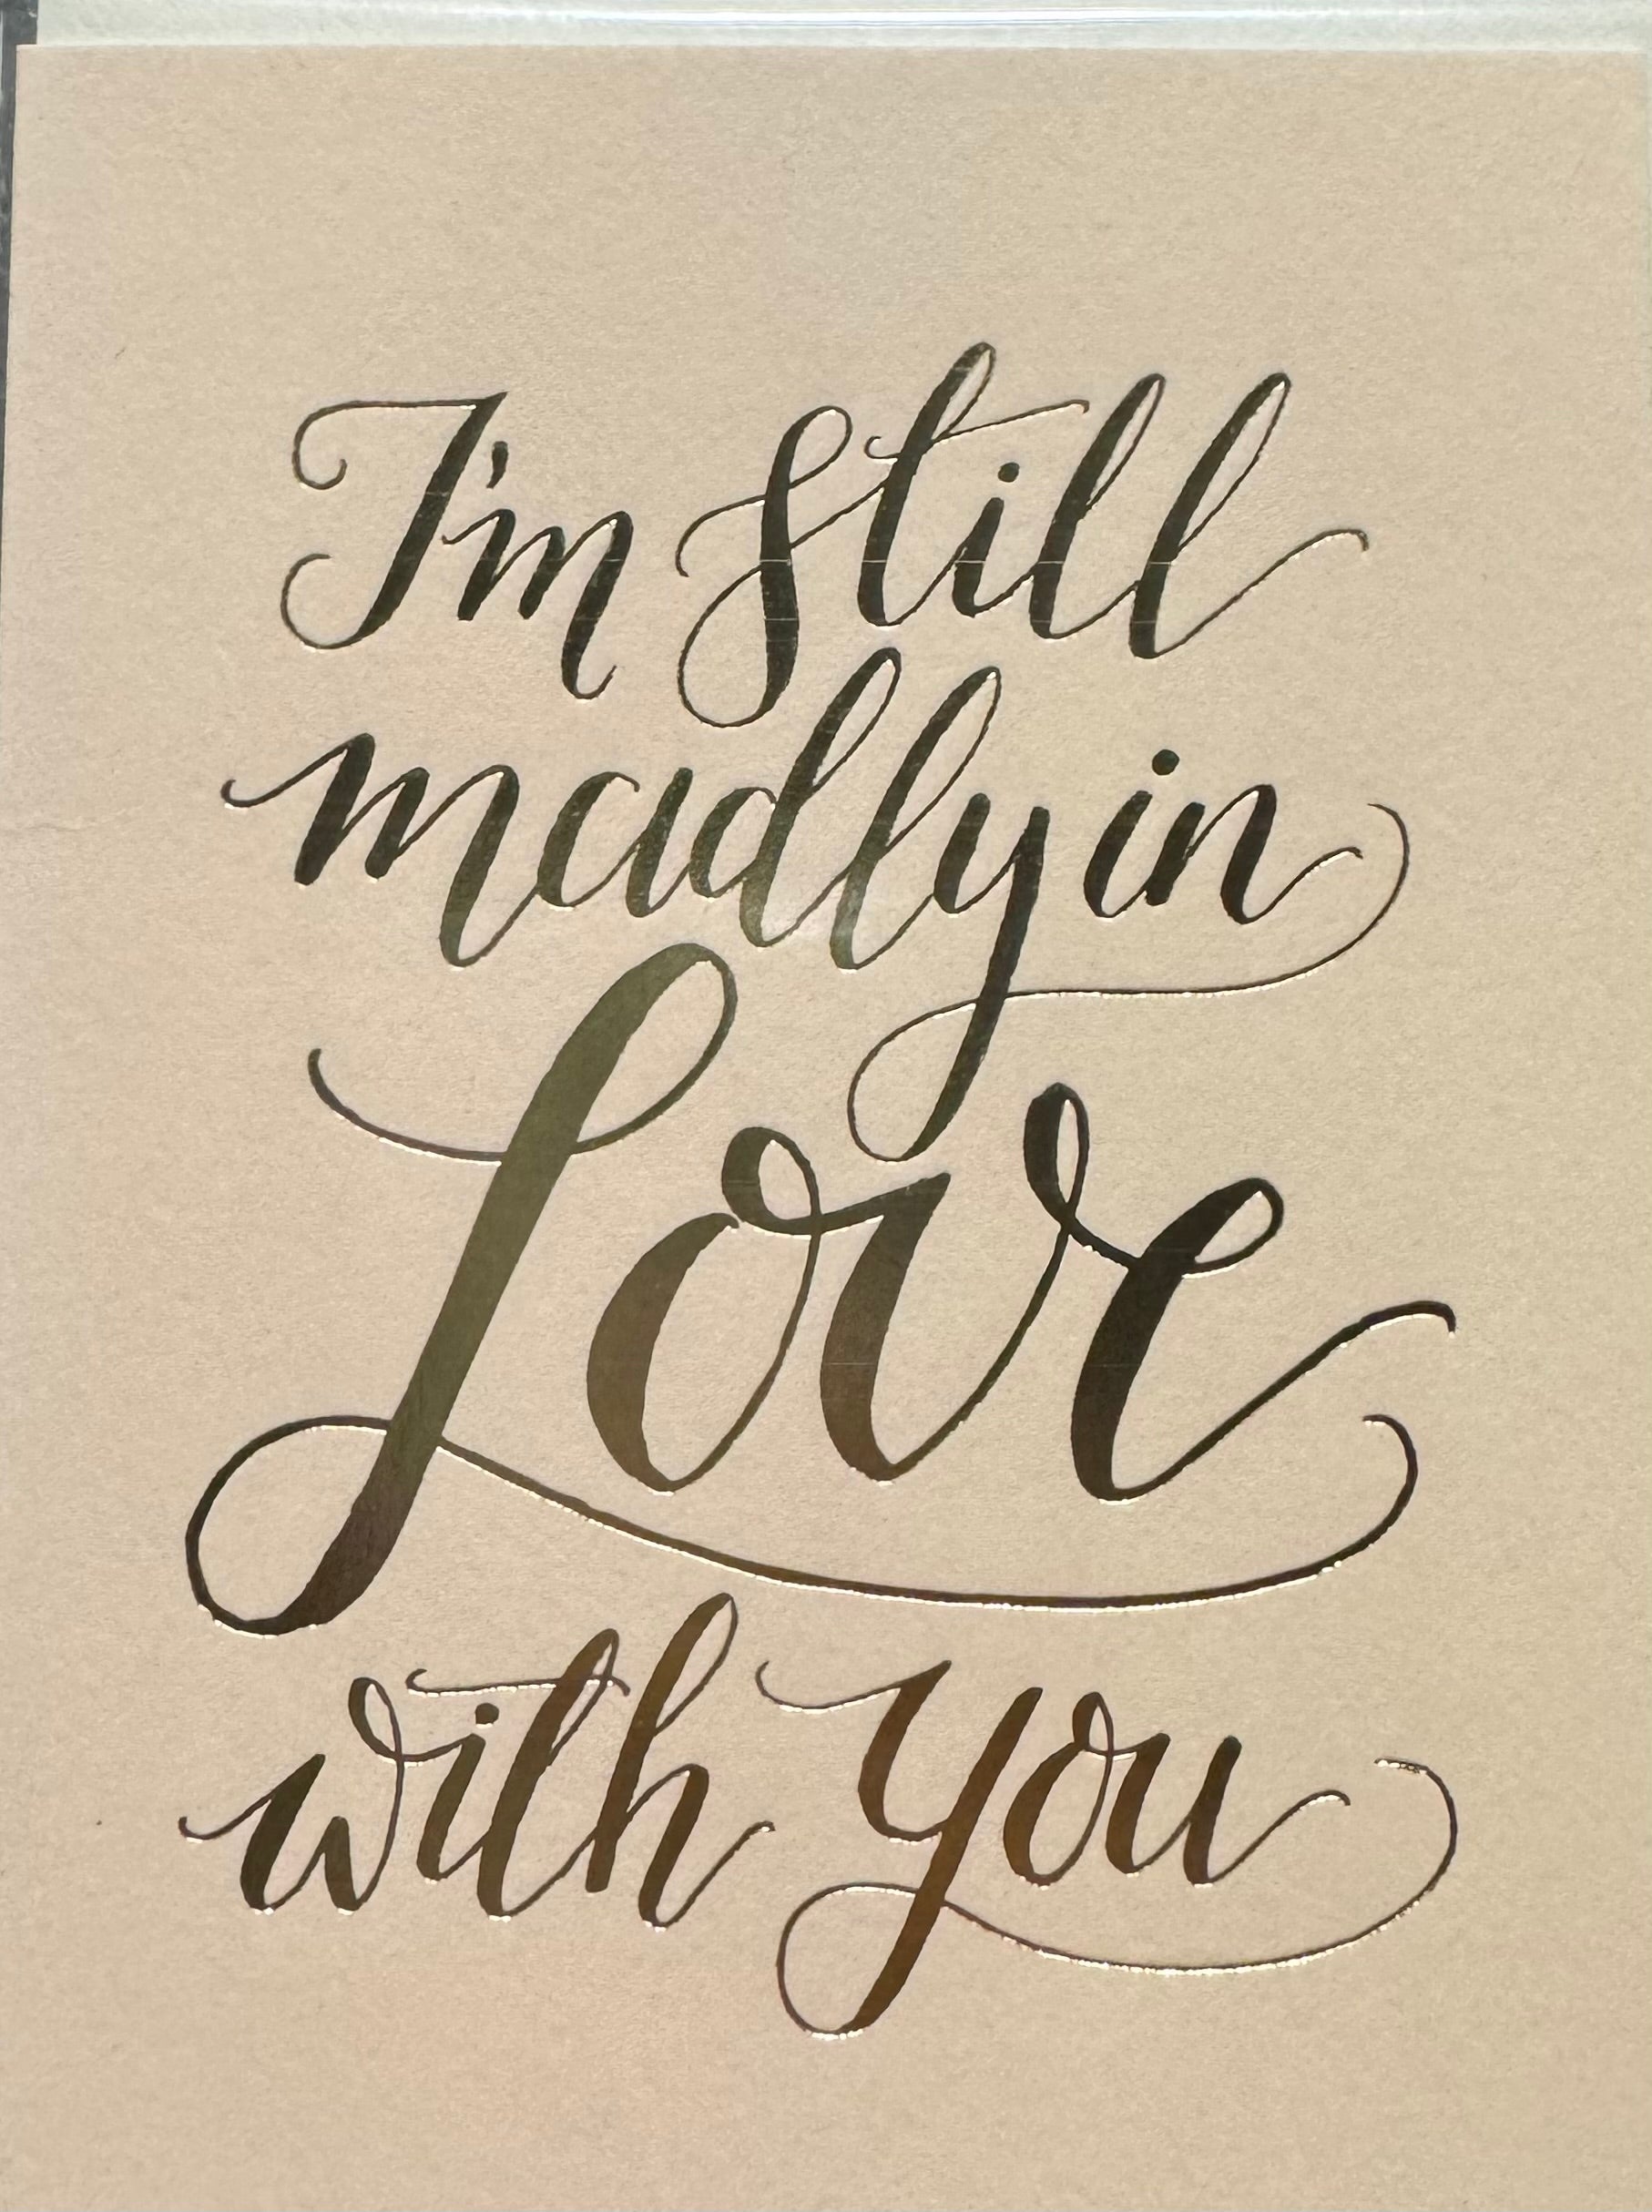 I'm still
madly in
Love
with you